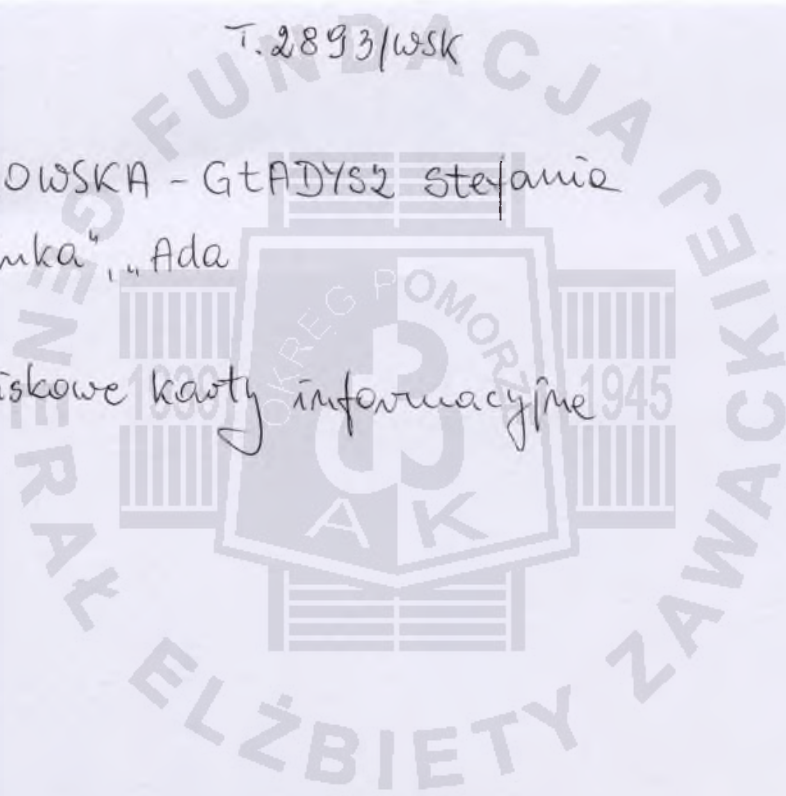 T. 2893/WSK
OWSKA - GŁADYSZ Stefania
nka", "Ada
iskowe karty informacyjne
FUNDACJA GENERAŁ ELŻBIETY ZAWACKIEJ
OKRĘG POMORZE
1939 1945
AK